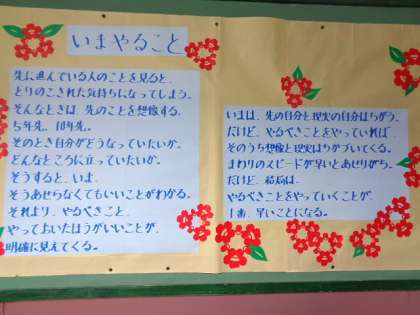 いまやること
先に進んでいる人のことを見ると、
とりのこされた気持ちになってしまう。
そんなときは、先のことを想像する。
5年先。10年先。
そのとき自分がどうなっていたいか。
どんなところに立っていたいか。
そうすると、いま、
そうあせらなくてもいいことがわかる。
それより、やるべきこと、
やっておいたほうがいいことが、
明確に見えてくる。
いまは、先の自分と現実の自分はちがう。
だけど、やるべきことをやっていれば、
そのうち想像と現実はちかづいてくる。
まわりのスピードが早いとあせりがち。
だけど、結局は、
やるべきことをやっていくことが、
1番、早いことになる。